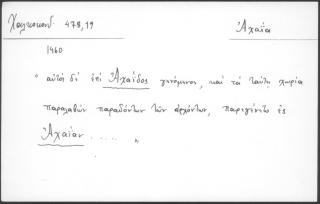 Χαλκοκονδ. 478,19 Ἀχαΐα
1460
“ αὐτὸς δὲ ἐπὶ Ἀχαΐδος γενόμενος, καὶ τὰ ταύτῃ χωρία
παραλαβὼν παραδόντων τῶν ἀρχόντων, παρεγένετο ἐς
Ἀχαΐαν ..... „